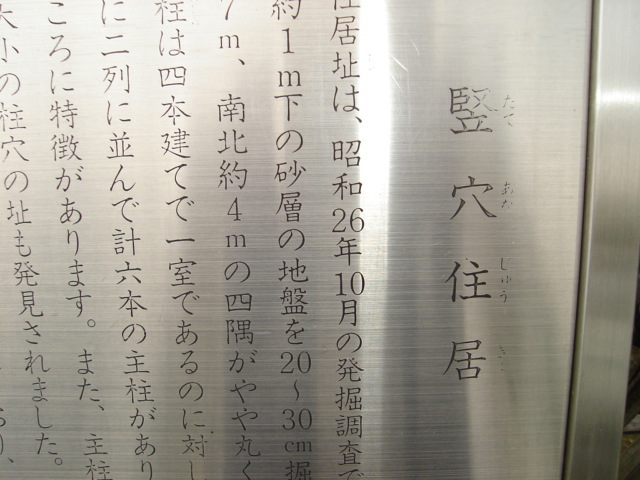 竪穴住居
たて あな じゅう きょ
住居址は、昭和26年10月の発掘調査で
約1m下の砂層の地盤を20~30cm掘
7m、南北約4mの四隅がやや丸く
柱は四本建てで一室であるのに対し
に二列に並んで計六本の主柱があり
ころに特徴があります。また、主柱
大小の柱穴の址も発見されました。